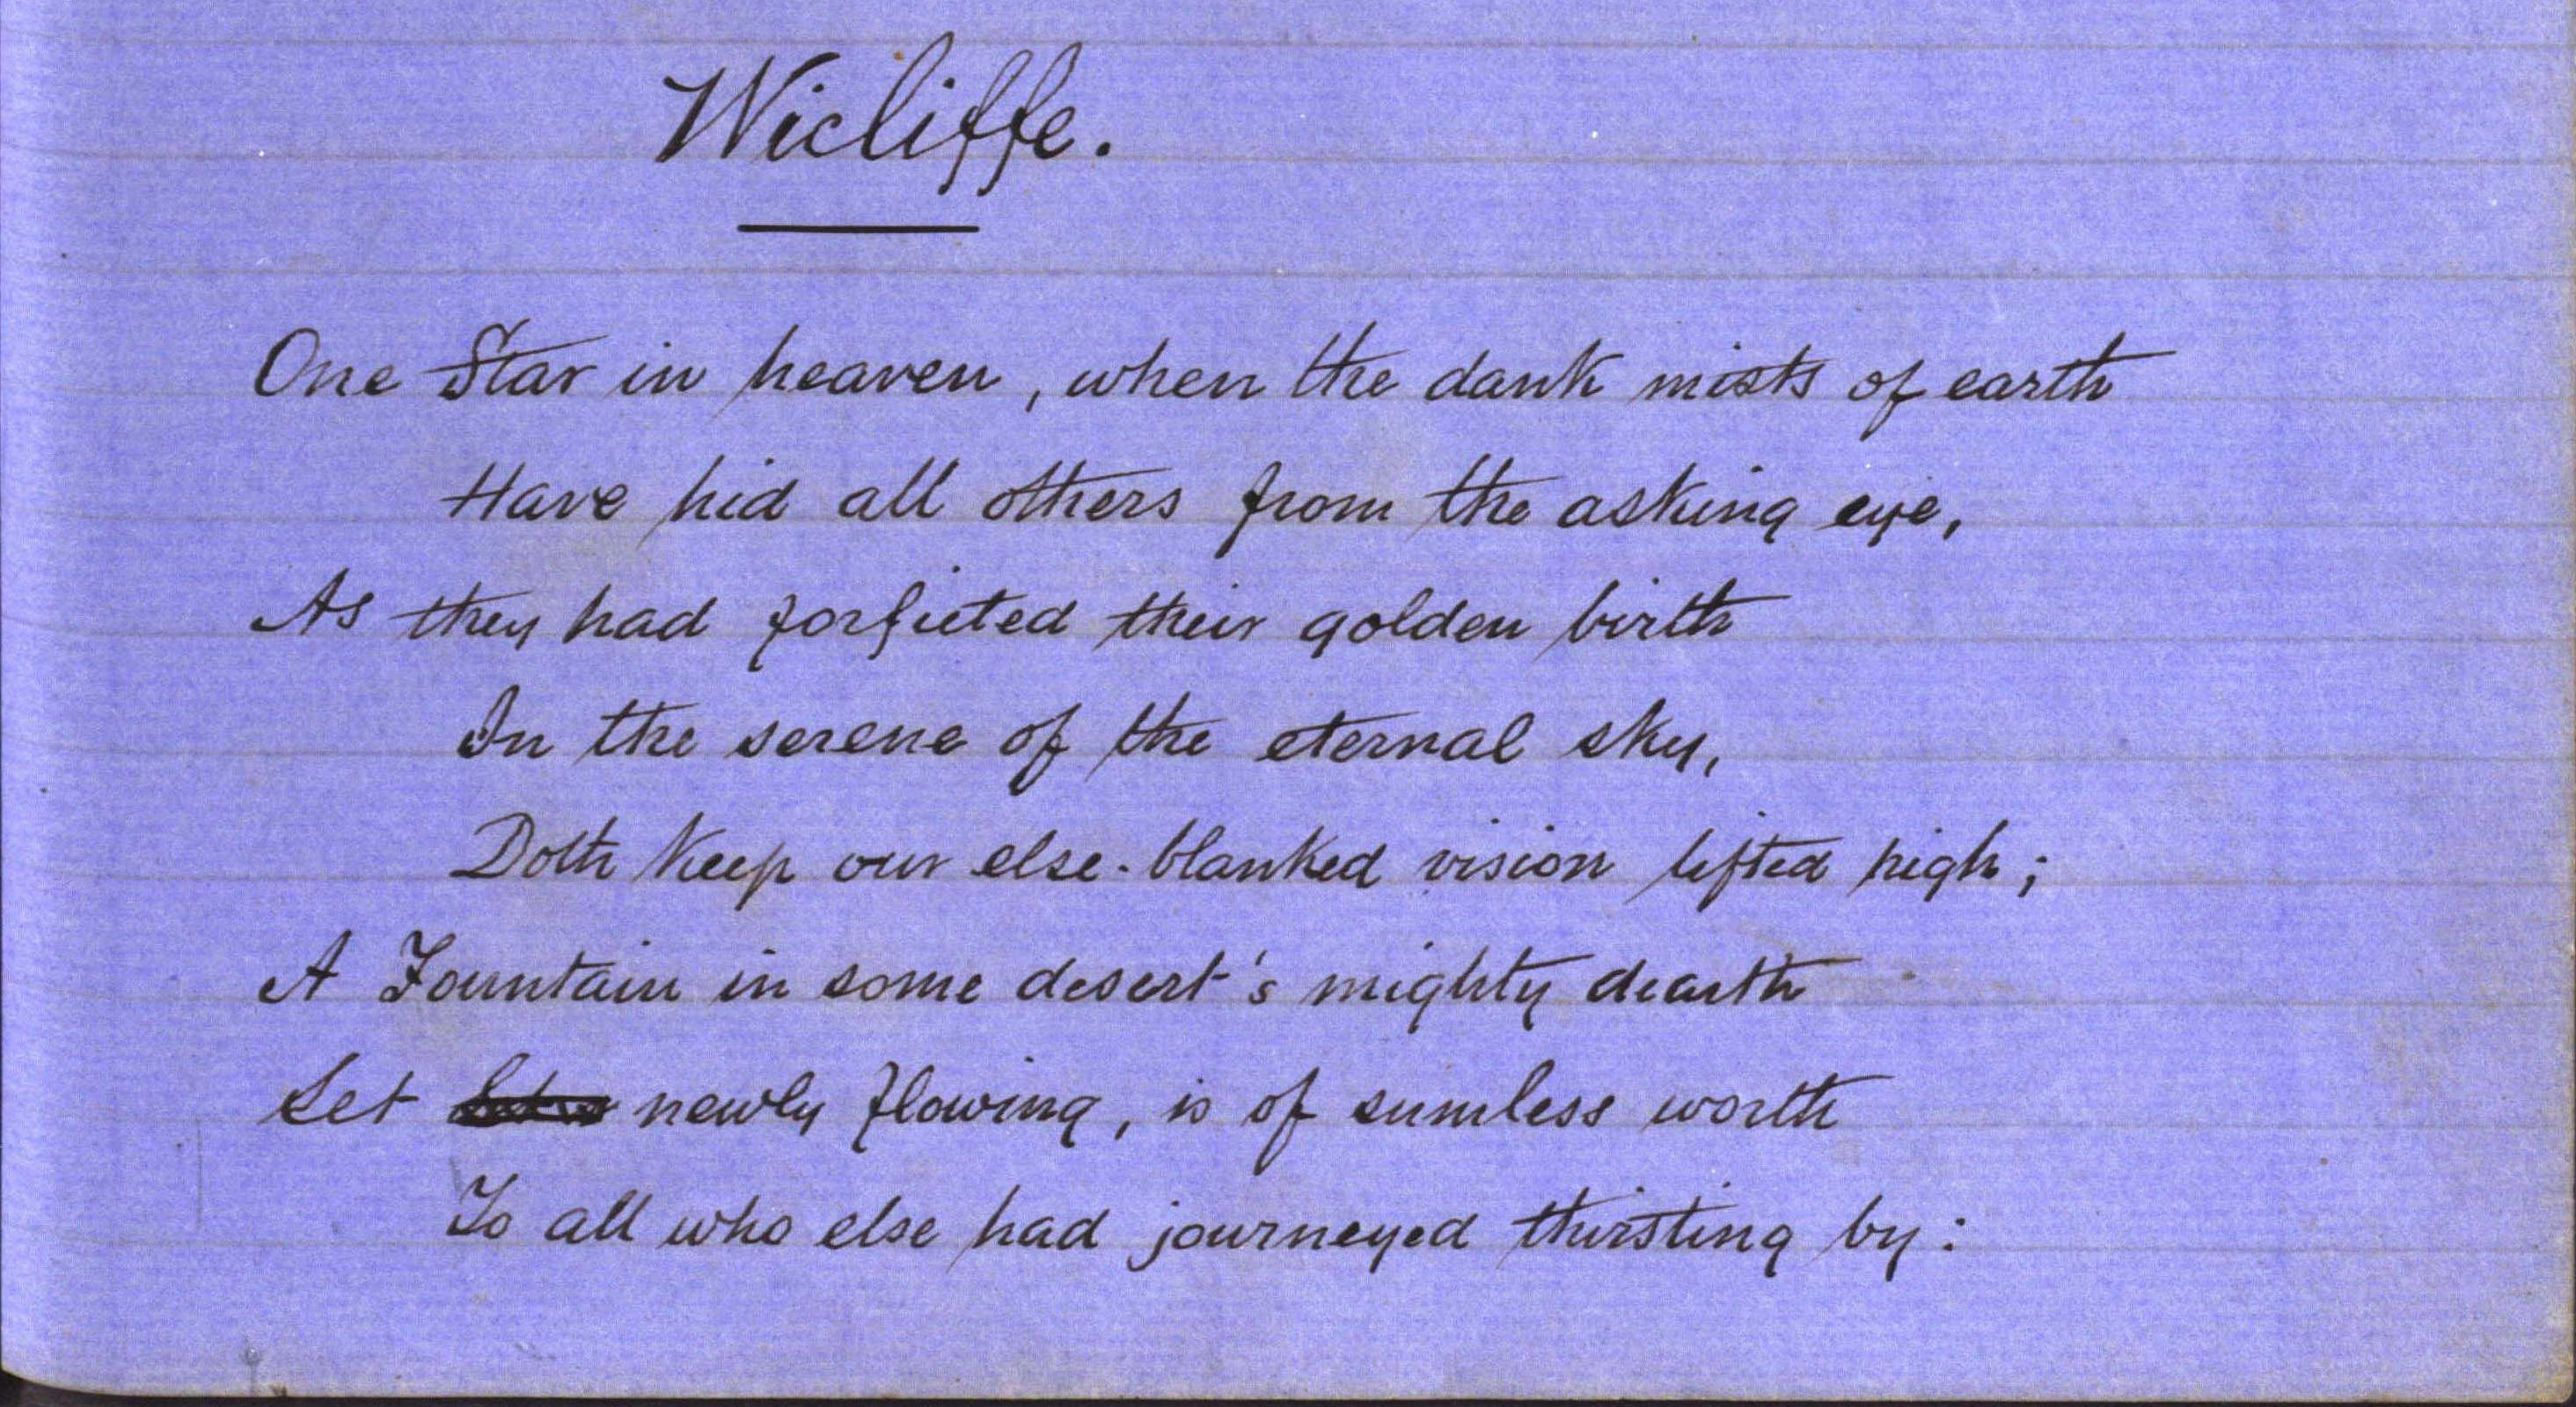 Wicliffe.
One Star in heaven, when the dank mists of earth
Have hid all others from the asking eye,
As they had forfieted their golden birth
In the serene of the eternal sky,
Doth keep our else-blanked vision lifted high;
A Fountain in some desert's mighty dearth
Set newly flowing, is of sumless worth
To all who else had journeyed thirsting by: